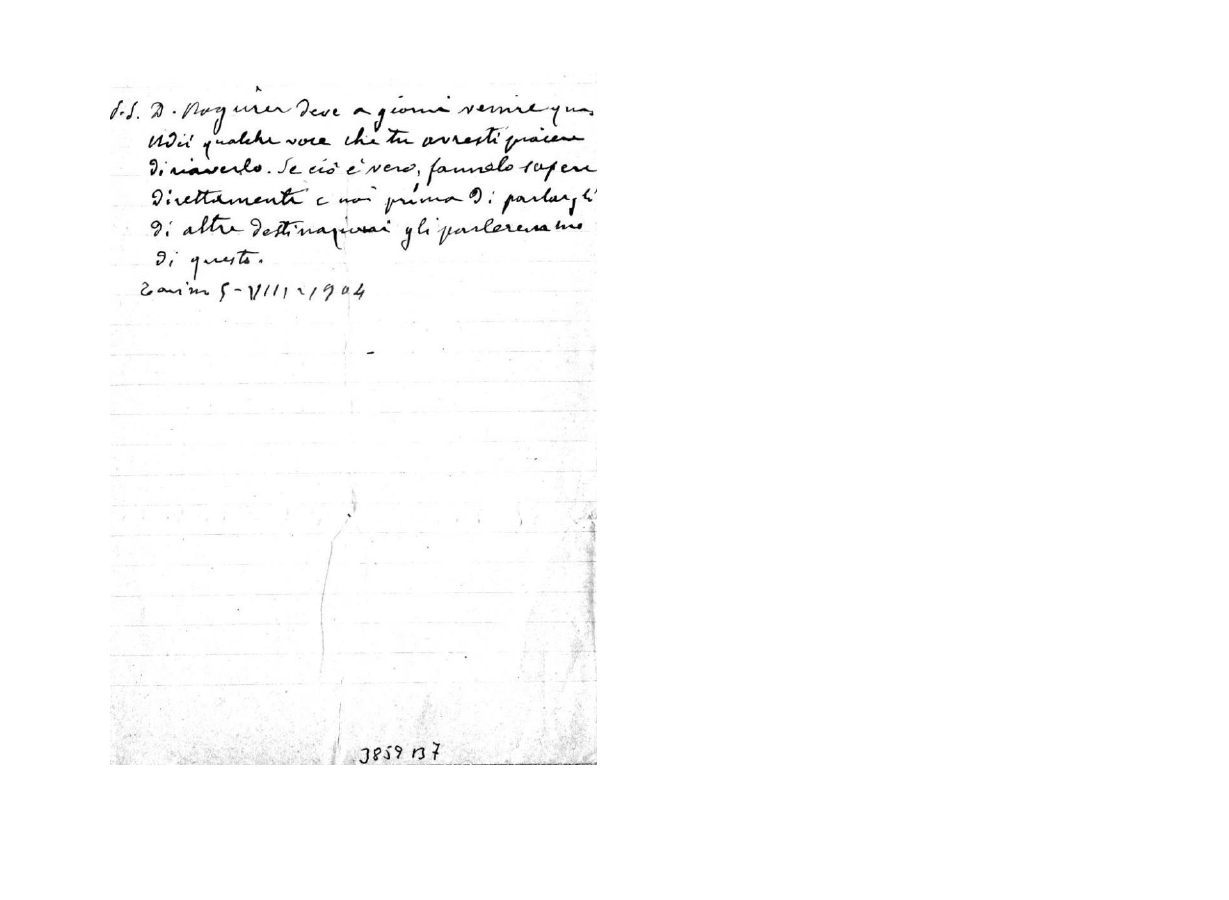 P.S. D. Roguier deve a giorni venire qua.
Udii qualche voce che tu avresti piacere
di riaverlo. Se ciò è vero, fannelo sapere
direttamente e noi prima di parlargli
di altre destinazioni gli parleremmo
di questo.
Torino 5-VIII-1904
3859 B7